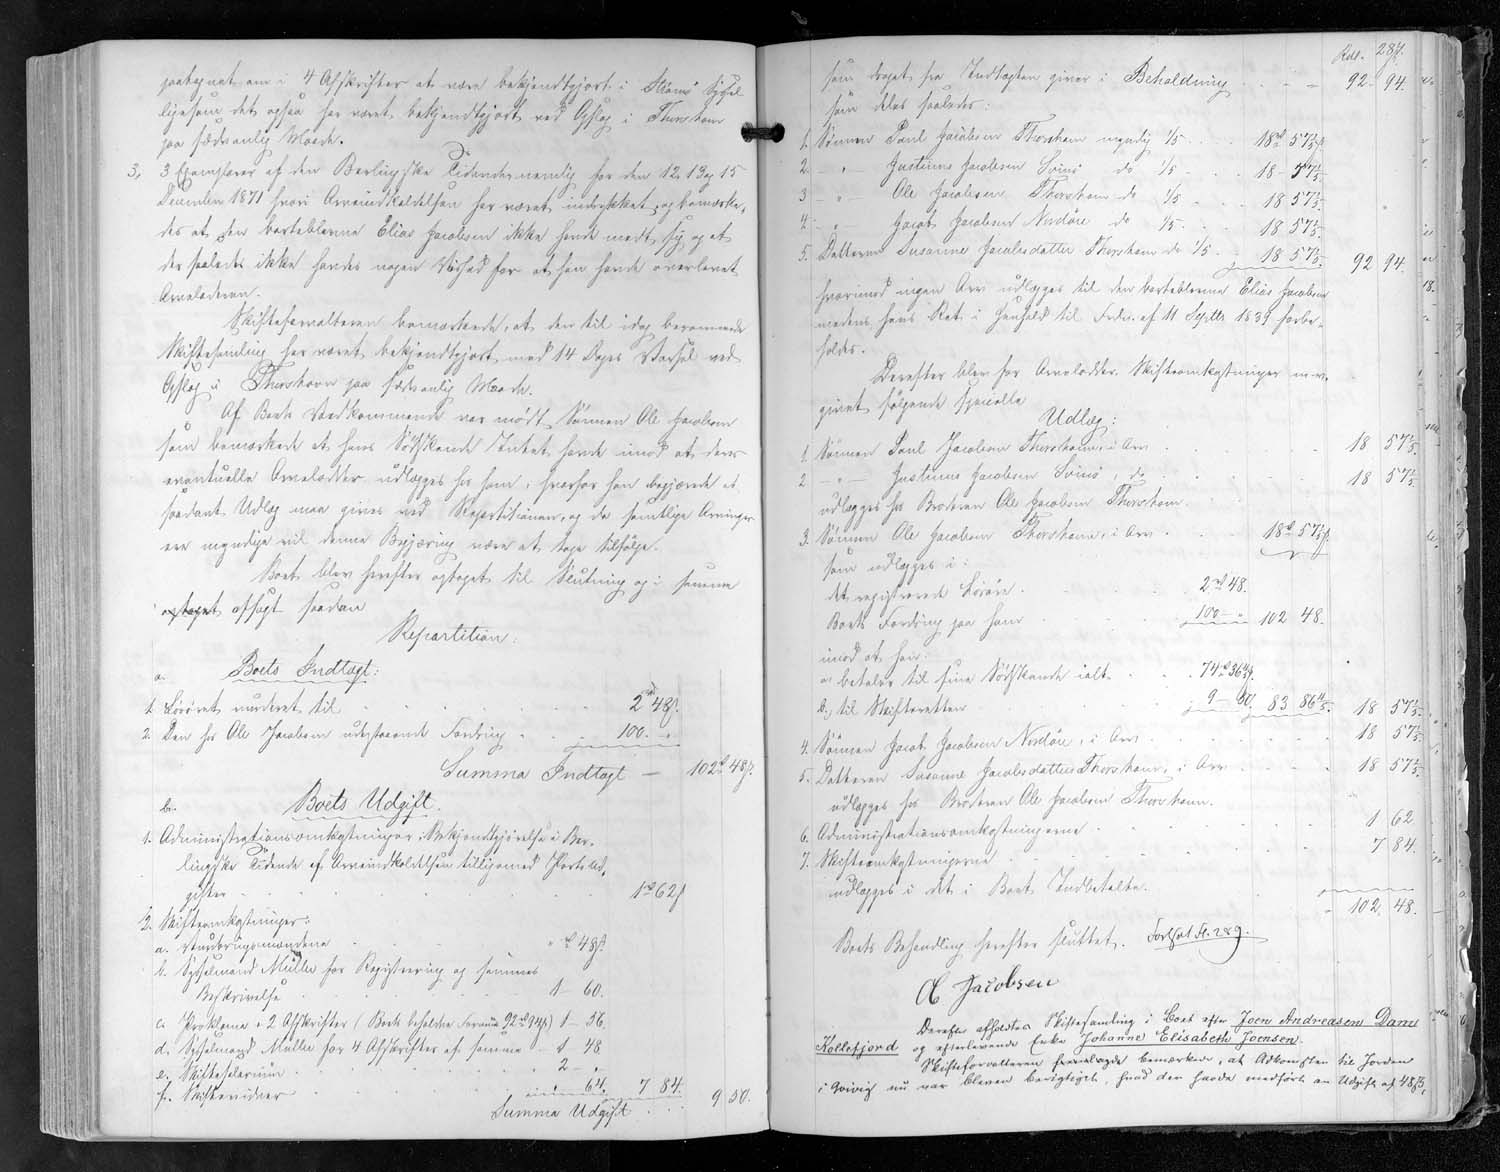 paategnet om i 4 Afskrifter at være bekjendtgjort i Strømø Syssel
ligesom det ogsaa har været bekjendtgjort ved Opslag i Thorshavn
paa sædvanlig Maade.
3, 3 Exemplarer af den Berlingske Tidende nemlig for den 12. 13 og 15
December 1871 hvori Arveindkaldelsen har været indrykket, og bemærke-
des at den borteblevne Elias Jacobsen ikke havde meldt sig og at
der saaledes ikke havdes nogen Vished for at han havde overlevet
Arveladeren.
Skifteforvalteren bemærkede, at den til idag berammede
Skiftesamling har været bekjendtgjort med 14 Dages Varsel ved
Opslag i Thorshavn paa sædvanlig Maade.
Af Boets Vedkommende var mødt Sønnen Ole Jacobsen
som bemærkede at hans Sødskende Intet havde imod at deres
eventuelle Arvelodder udlægges hos ham, hvorfor han begjærede at
saadant Udlæg maa gives ved Repartitionen, og da samtlige Arvinger
ere myndige vil denne Begjæring være at tage tilfølge.
Boet blev herefter optaget til Slutning og i samme
optaget afsagt saadan
Repartition:
a. Boets Indtægt:
1. Løsøret vurderet til . . . 2 rd 48 ß.
2. Den hos Ole Jacobsen udestaaende Fordring . . . 100. "
Summa Indtægt — 102 rd 48 ß.
b. Boets Udgift.
1. Administrationsomkostninger: Bekjendtgjørelse i Ber-
lingske Tidende af Arveindkaldelsen tilligemed Portoud-
gifter . . . 1 rd 62 ß
2. Skifteomkostninger:
a. Vurderingsmændene . . . " rd 48 ß.
b. Sysselmand Müller for Registrering og sammes
Beskrivelse . . . 1 — 60.
c. Proklama i 2 Afskrifter (Boets beholdne Formue 92 rd 94 ß) 1 — 36.
d. Sysselmand Müller for 4 Afskrifter af samme — 1 48
e. Skiftesalarium . . . 2 — "
f. Skiftevidner . . . 64. 7 84.
Summa Udgift . . . 9 50.
Rdl. 287. ß.
som draget fra Indtægten giver i Behaldning . . . 92 94.
som deles saaledes:
1. Sønnen Poul Jacobsen Thorshavn myndig 1/5 . . 18 rd 57 1/5 ß
2. — " — Justinus Jacobsen Svinø do 1/5 . . 18 — 57 1/5.
3 — " — Ole Jacobsen Thorshavn do 1/5 . . 18 57 1/5.
4. — " — Jacob Jacobsen Nordøre do 1/5 . . 18 57 1/5.
5. Datteren Susanne Jacobsdatter Thorshavn do 1/5 . 18 57 1/5. 92 94.
hvorimod ingen Arv udlægges til den bortblevne Elias Jacobsen
medens hans Ret i Henhold til Frdn. af 11 Septbr 1839 forbe-
holdes.
Derefter blev for Arvelodder, Skifteomkostninger m. v.
givet følgende specielle
Udlæg:
1. Sønnen Poul Jacobsen Thorshavn, i Arv . . . 18 57 1/5.
2. — " — Justinus Jacobsen Svinø, do . . . 18 57 1/5
udlægges hos Broderen Ole Jacobsen Thorshavn.
3. Sønnen Ole Jacobsen Thorshavn, i Arv . . 18 rd 57 1/5 ß
som udlægges i:
det registrerede Løsøre . . . 2 rd 48.
Boets Fordring paa ham . . . 100 — " 102 48.
imod at han:
a. betaler til sine Sødskende ialt . . 74 rd 36 4/5 ß.
b. til Skifteretten . . . 9 — 50. 83 86 4/5. 18 57 1/5.
4. Sønnen Jacob Jacobsen Nordøre, i Arv . . . 18 57 1/5.
5. Datteren Susanne Jacobsdatter Thorshavn, i Arv . . . 18 57 1/5.
udlægges hos Broderen Ole Jacobsen Thorshavn.
6. Administrationsomkostningerne . . . 1 62
7. Skifteomkostningerne . . . 7 84.
udlægges i det i Boet Indbetalte.
102. 48.
Boets Behandling herefter sluttet. Fortsat Fl. 289.
Jacobsen
Derefter afholdtes Skiftesamling i Boet efter Joen Andreasen Dam
Kollefjord og efterlevende Enke Johanne Elisabeth Joensen.
Skifteforvalteren fremlagde bemærkede, at Adkomsten til Jorden
i Qvivig nu var bleven berigtiget, hvad der havde medført en Udgift af 48 ß,